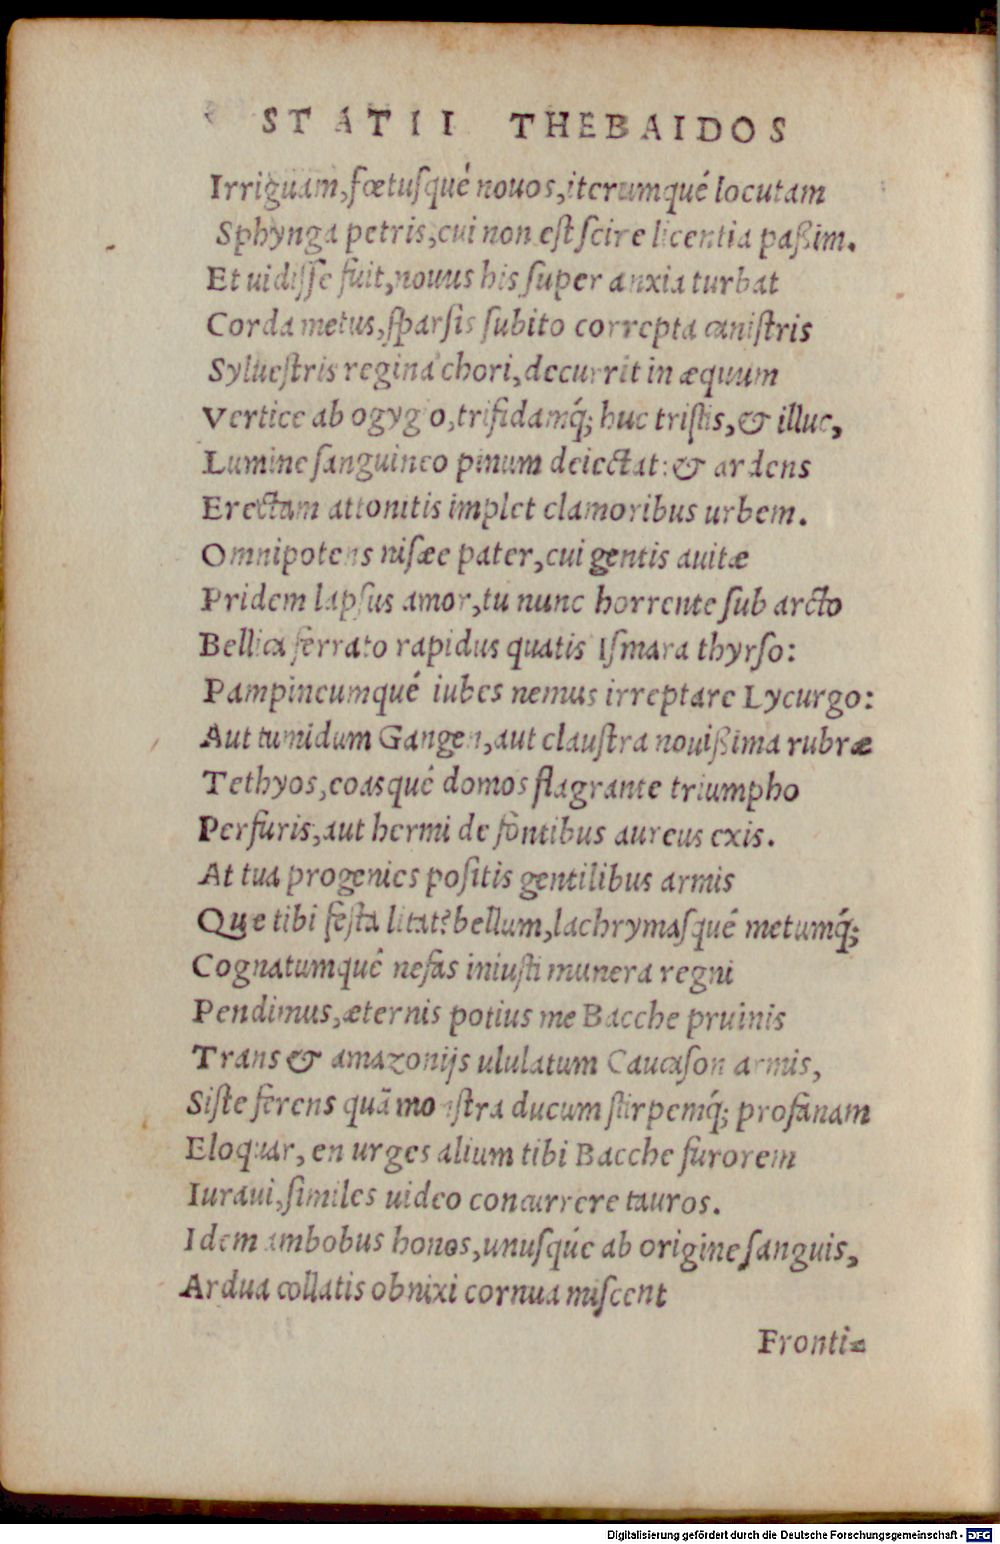 STATII THEBAIDOS
Irriguam, fœtuſqué nouos, iterumqué locutam
Sphynga petris, cui non eſt ſcire licentia paßim.
Et uidiſſe fuit, nouus his ſuper anxia turbat
Corda metus, ſparſis ſubito correpta caniſtris
Sylueſtris regina chori, decurrit in æquum
Vertice ab ogygio, trifidamq́; huc triſtis, & illuc,
Lumine ſanguineo pinum deiectat: & ardens
Erectam attonitis implet clamoribus urbem.
Omnipotens niſæe pater, cui gentis auitæ
Pridem lapſus amor, tu nunc horrente ſub arcto
Bellica ferrato rapidus quatis Iſmara thyrſo:
Pampineumqué iubes nemus irreptare Lycurgo:
Aut tumidum Gangen, aut clauſtra nouißima rubræ
Tethyos, eoasqué domos flagrante triumpho
Perfuris, aut hermi de fontibus aureus exis.
At tua progenies poſitis gentilibus armis
Que tibi feſta litat? bellum, lachrymaſqué metumq́;
Cognatumqué nefas iniuſti munera regni
Pendimus, æternis potius me Bacche pruinis
Trans & amazonijs ululatum Caucaſon armis,
Siſte ferens quā monſtra ducum ſtirpemq́; profanam
Eloquar, en urges alium tibi Bacche furorem
Iuraui, ſimiles uideo concurrere tauros.
Idem ambobus honos, unuſqué ab origine ſanguis,
Ardua collatis obnixi cornua miſcent
Fronti-
Digitalisierung gefördert durch die Deutsche Forschungsgemeinschaft - DFG